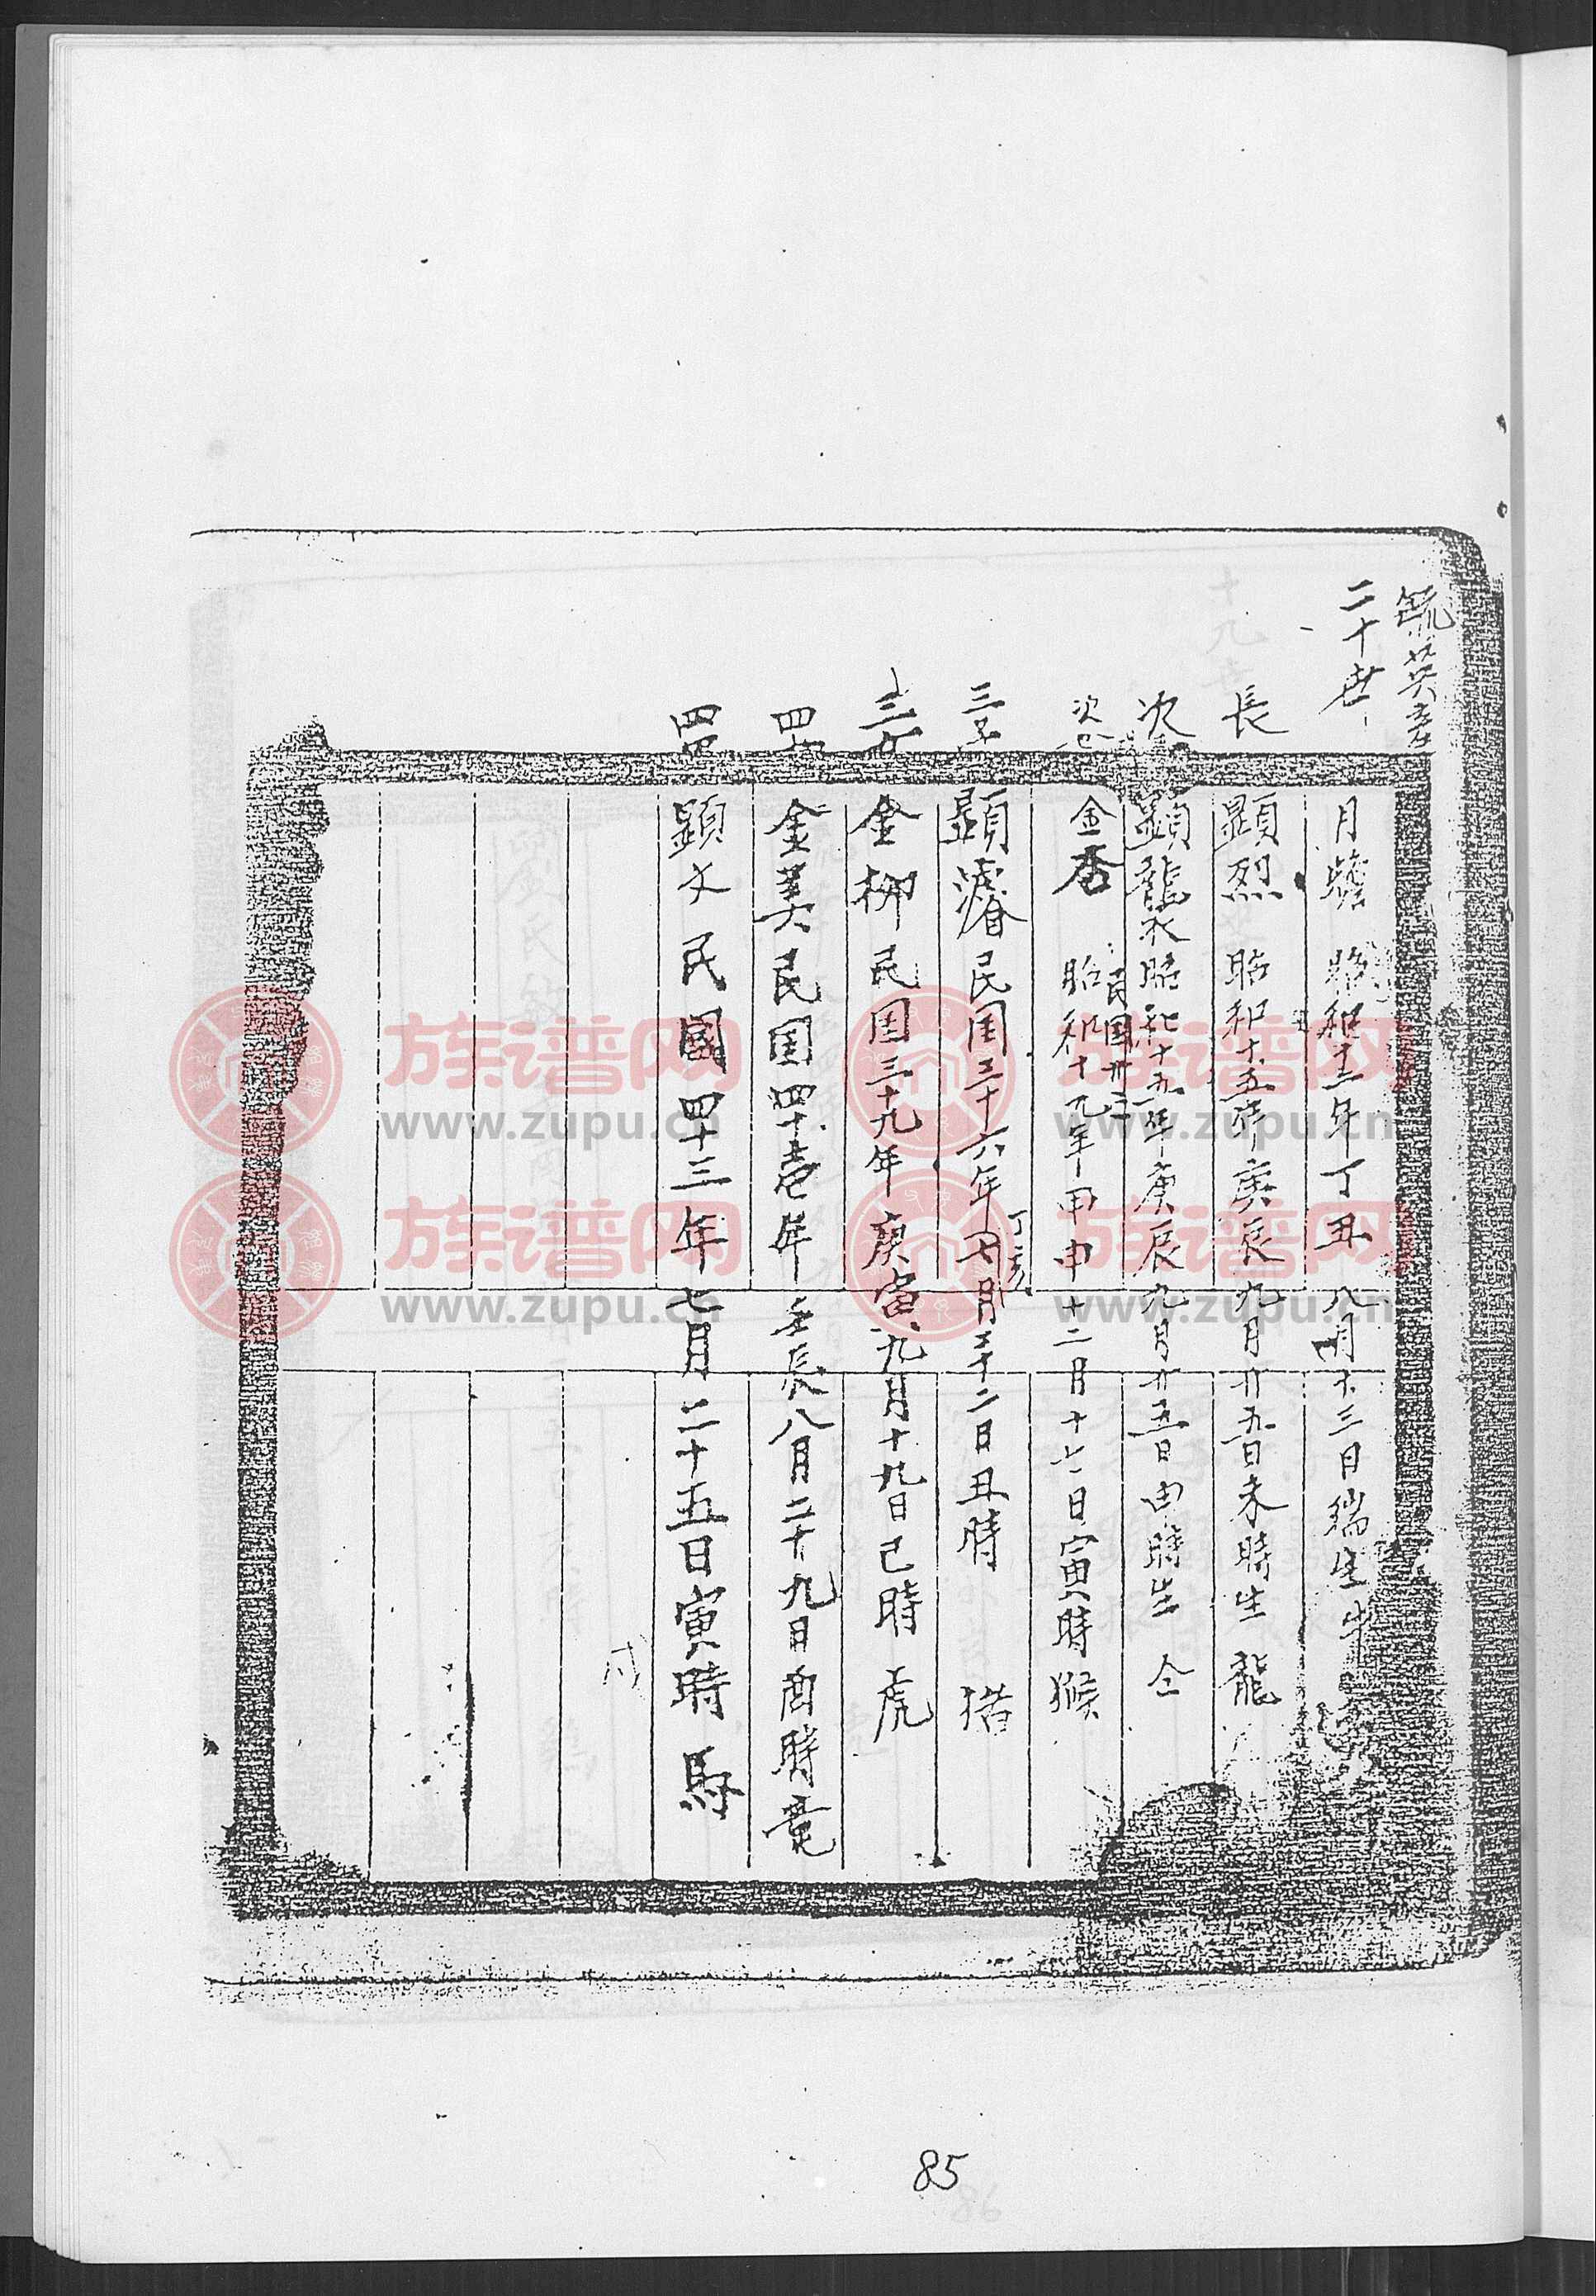 毓英彥
二十世
月 昭和十二年丁丑 八月十三日瑞生 牛
長 顕烈 昭和十五年庚辰九月廿五日未時生 龍
次 顕龍 昭和十五年庚辰九月廿五日申時生 仝
民国卅三
次 金香 昭和十九年甲申十二月十七日寅時 猴
三子 顕濬 民国三十六年七月二十二日丑時 猪
丁亥
三女 金柳 民国三十九年庚寅九月十九日己時 虎
四女 金美 民国四十壱年壬辰八月二十九日酉時 竜
四 顕文 民國四十三年七月二十五日寅時 馬
戌
85
族谱网
www.zupu.cn
族谱网
www.zupu.cn
族谱网
www.zupu.cn
族谱网
www.zupu.cn